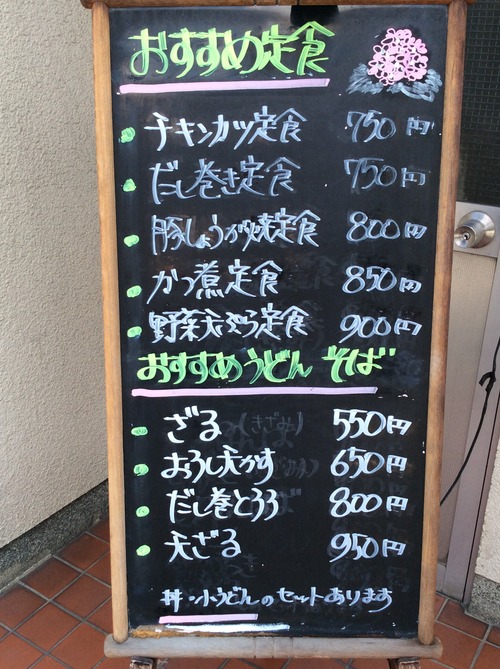 おすすめ定食
チキンカツ定食 750円
だし巻き定食 750円
豚しょうが焼定食 800円
かつ煮定食 850円
野菜天ぷら定食 900円
おすすめうどん そば
ざる 550円
おろし天かす 650円
だし巻とろろ 800円
天ざる 950円
丼・小うどんのセットあります